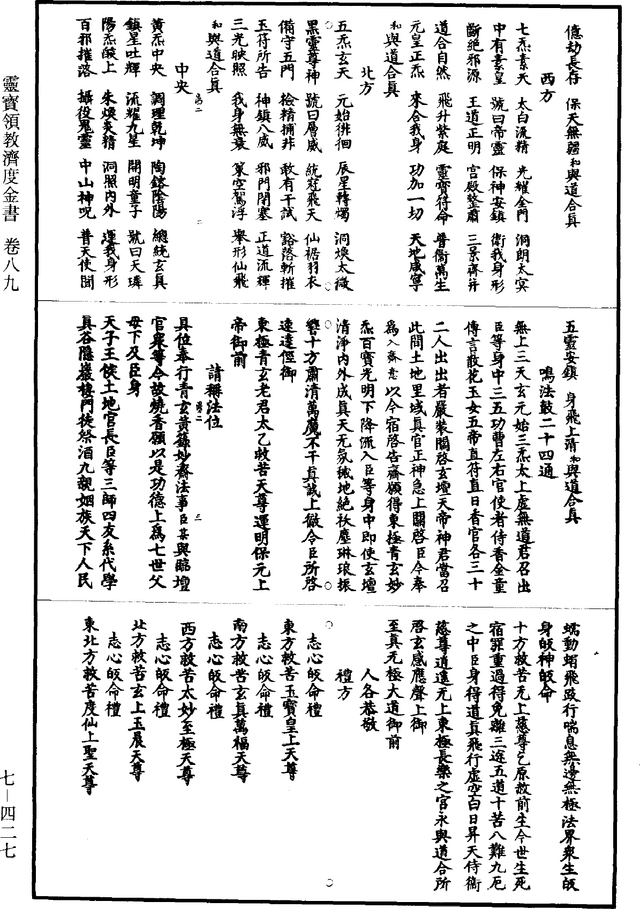 億劫長存　保天無韙和與道合真
西方
七炁素天　太白流精　光耀金門　洞朗太冥
中有素皇　號曰帝靈　保神安鎮　衛我身形
斷絕邪源　王道正明　宮殿整肅　三景齊并
道合自然　飛升紫庭　靈寶符命　普衛萬生
元皇正炁　來合我身　功加一切　天地咸寧
和與道合真
北方
五炁玄天　元始徘徊　辰星轉燭　洞煥太微
黑靈尊神　號曰層威　統冠飛天　仙裾羽衣
備守五門　檢精捕非　敢有干試　豁落斬摧
玉符所告　神鎮八威　邪門閉塞　正道流輝
三光映照　我身無衰　策空駕浮　舉形仙飛
和與道合真
中央
黃炁中央　調理乾坤　陶鎔陰陽　總統玄真
鎮星吐輝　流耀九星　開明童子　號曰天璘
陽炁陶上　朱煥炎精　洞照內外　運我身形
百邪摧落　攝役鬼靈　中山神呪　普天使聞
五靈安鎮　身飛上清和與道合真
鳴法鼓二十四通
無上三天玄元始三炁太上虛無道君召出
臣等身中三五功曹左右官使者侍香金童
傳言散花玉女五帝直符直日香官各三十
二人出出者嚴裝關啓玄壇天帝神君當召
此間土地里域真官正神急上關啓臣今奉
為入齋意以今宿啓告齋願得東極青玄妙
炁百寶光明下降流入臣等身中即使玄壇
清淨內外成真天无氛穢地絕袄塵琳琅振
響十方肅清萬魔不干真誠上徹令臣所啓
速達徑御
東極青玄老君太乙救苦天尊運明保元上
帝御前
請稱法位
具位奉行青玄黃籙妙齋法事臣某與臨壇
官衆等今故燒香願以是功德上為七世父
母下及臣身
天子王侯土地官長臣等三師四友系代學
真谷隱巖棲門徒祭酒九親姻族天下人民
蠕動蜎飛跂行喘息無邊無極法界衆生皈
身皈神皈命
十方救苦无上慈尊乞原赦前生今世生死
宿罪重過得免離三途五道十苦八難九厄
之中臣身得道真飛行虛空白日昇天侍衛
慈尊逍遙无上東極長樂之宮永與道合所
啓玄感應聲上御
至真无極大道御前
人各恭敬
禮方
志心皈命禮
東方救苦玉寶皇上天尊
志心皈命禮
南方救苦玄真萬福天尊
志心皈命禮
西方救苦太妙至極天尊
志心皈命禮
北方救苦玄上玉晨天尊
志心皈命禮
東北方救苦度仙上聖天尊
靈寶領教濟度金書　卷八九
七—四二七